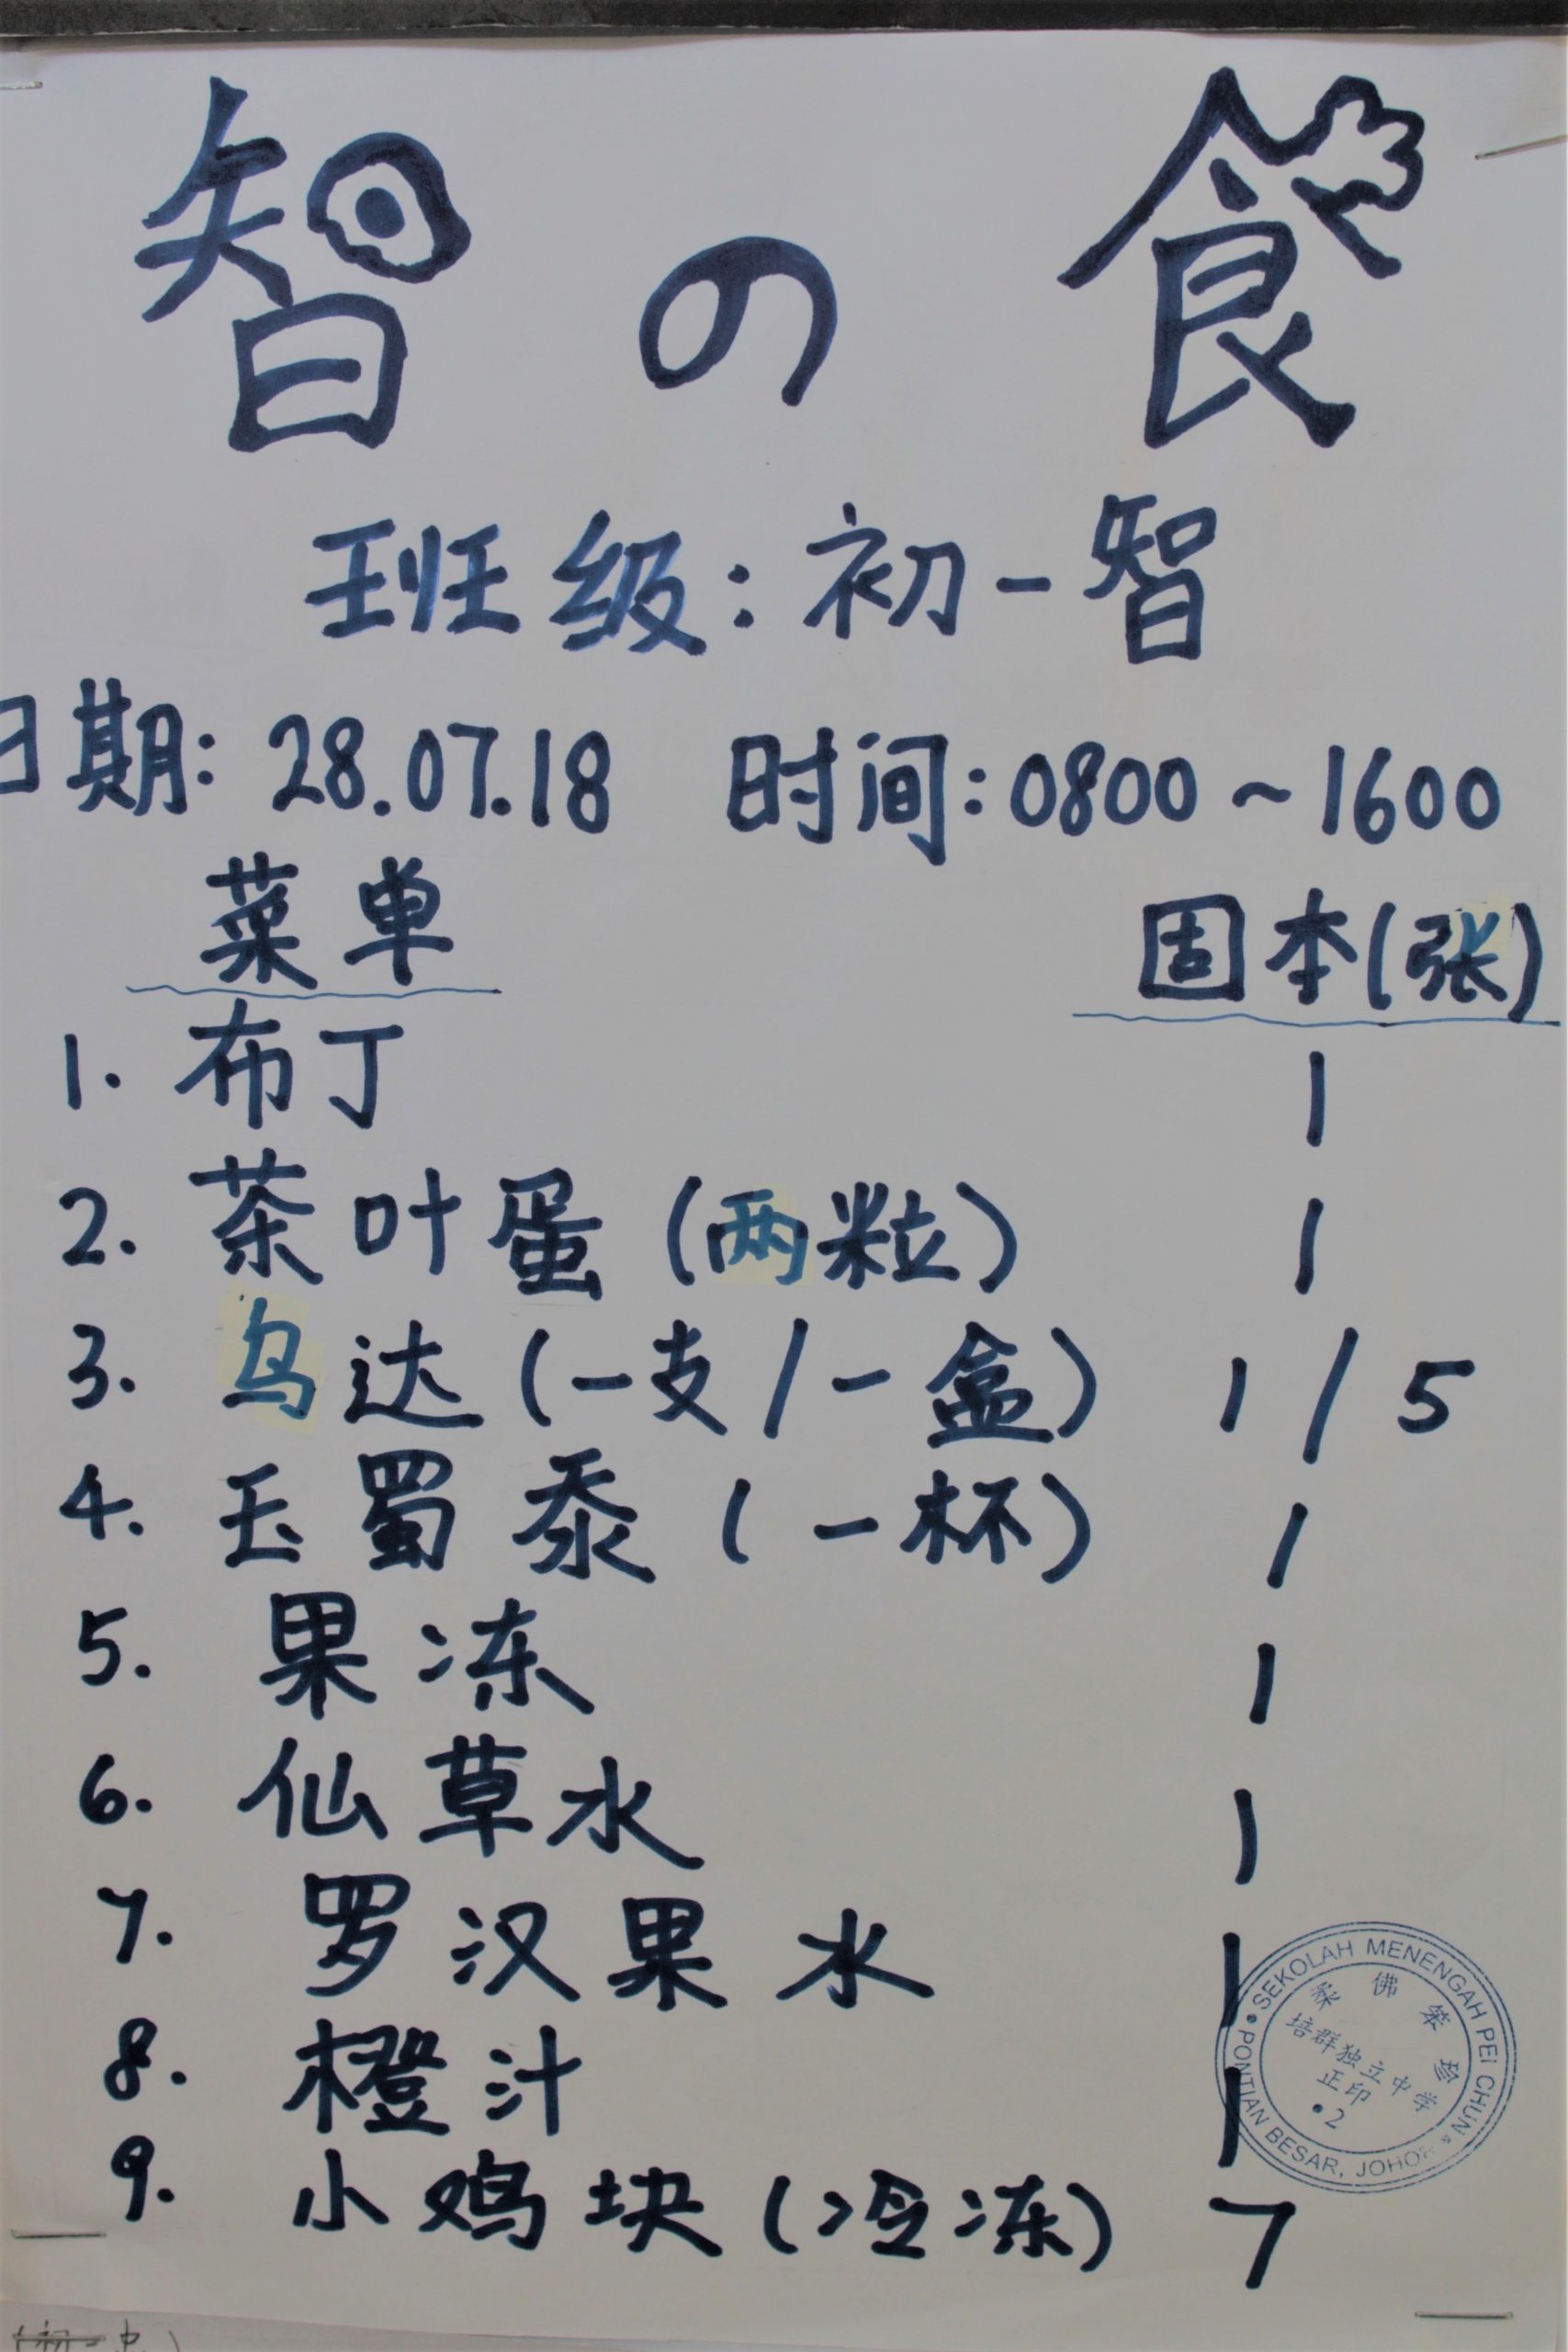 智の食
班级：初一智
日期：28.07.18 时间：0800～1600
菜单 固本（张）
1. 布丁 1
2. 茶叶蛋（两粒） 1
3. 乌达（一支/一盒） 1/5
4. 玉蜀黍（一杯） 1
5. 果冻 1
6. 仙草水 1
7. 罗汉果水 1
8. 橙汁 1
9. 小鸡块（冷冻） 7
SEKOLAH MENENGAH PEI CHUN
PONTIAN BESAR, JOHOR
柔佛笨珍
培群独立中学
正印
•2